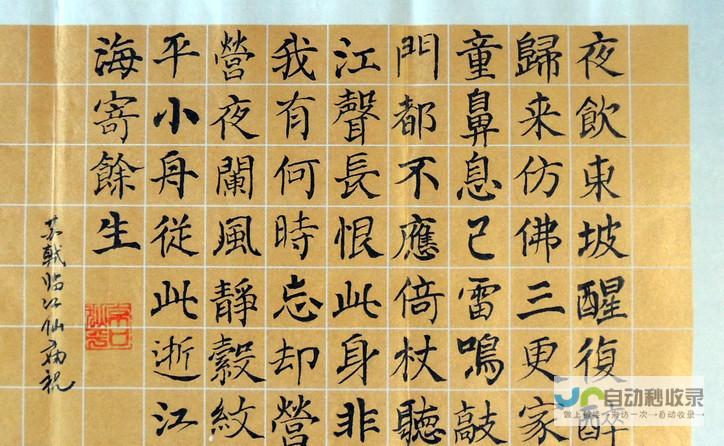 夜飲東坡醒復醉
歸来仿佛三更家
童鼻息已雷鳴敲
門都不應倚杖聽
江聲長恨此身非
我有何時忘却營
營夜闌風靜縠紋
平小舟從此逝江
海寄餘生
苏軾临江仙
自动秒收录
做上链接→来访一次→自动收录